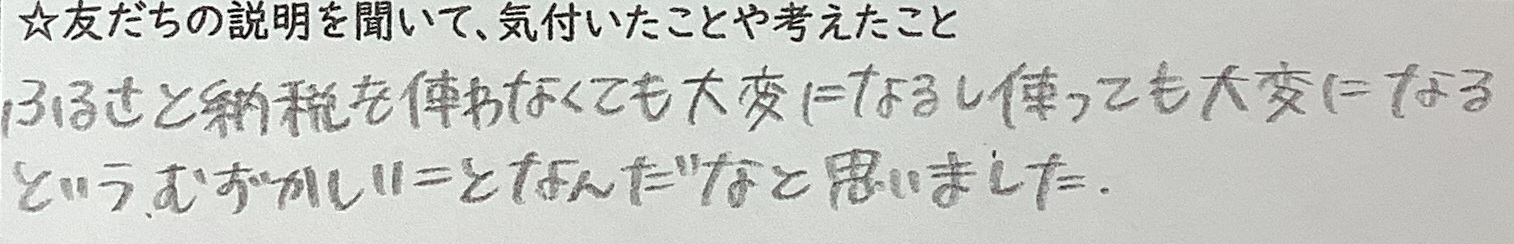 ☆友だちの説明を聞いて、気付いたことや考えたこと
ふるさと納税を使わなくても大変になるし使っても大変になる
という、むずかしいことなんだなと思いました.